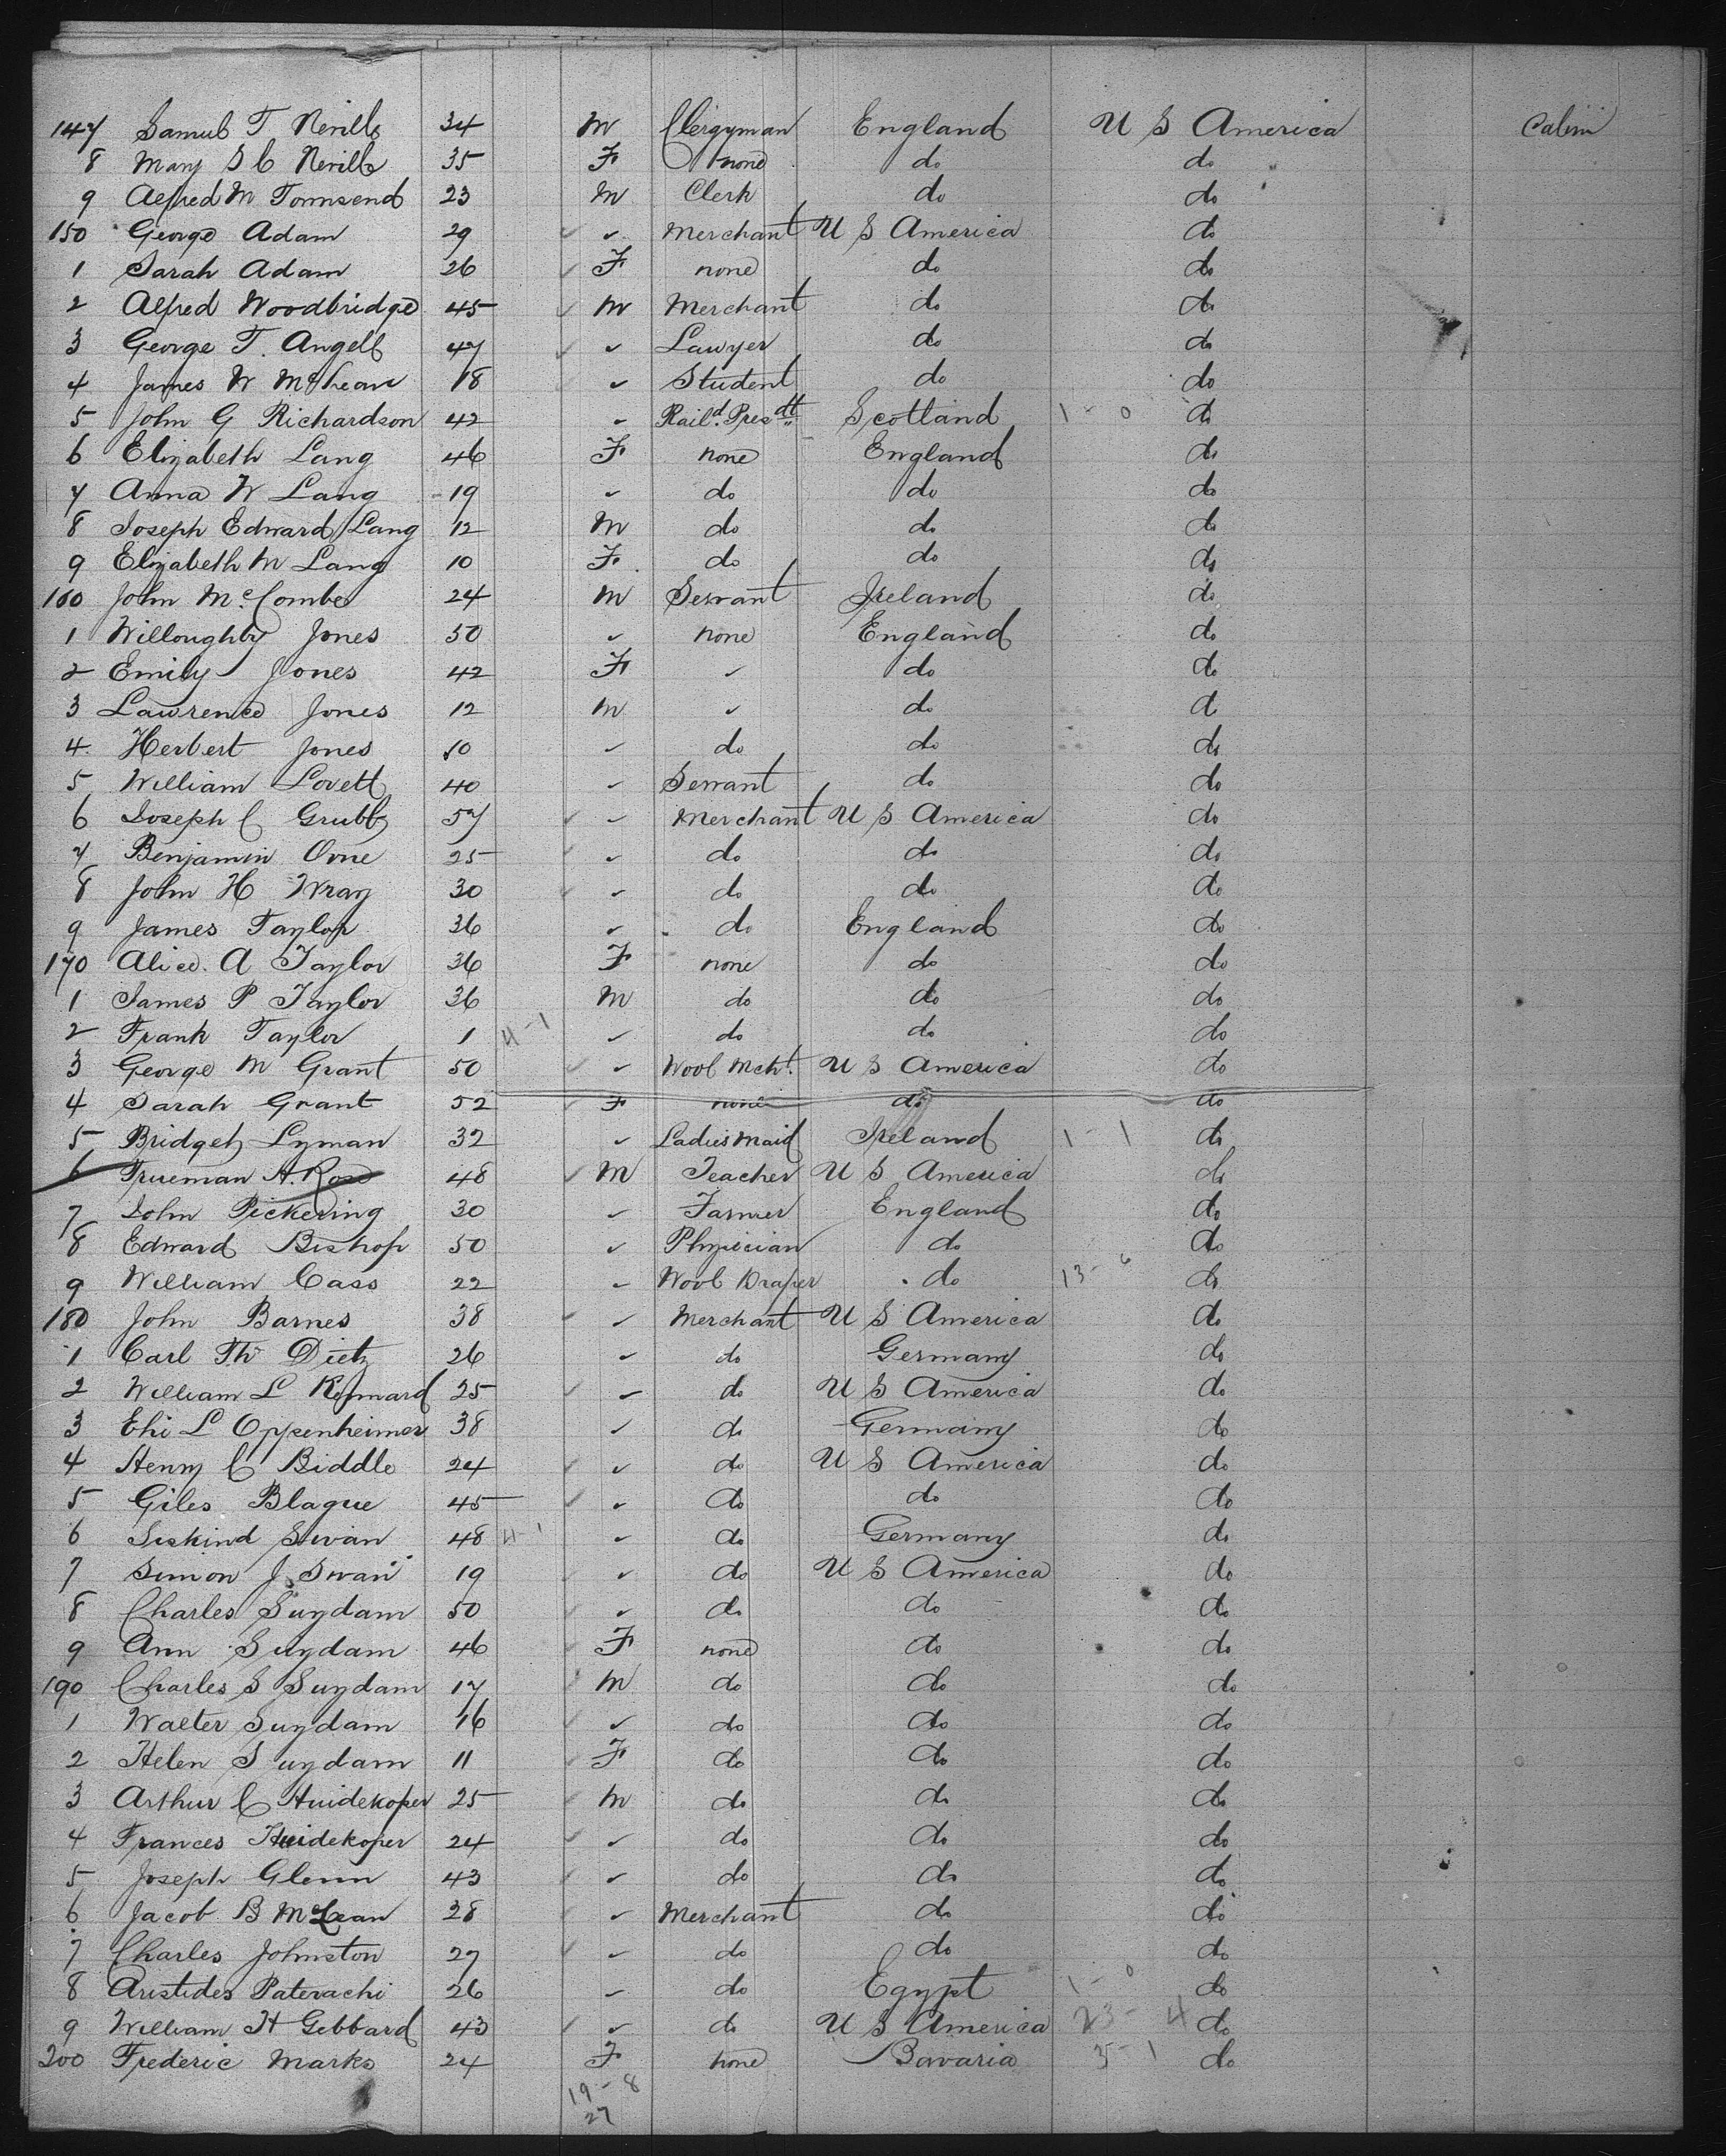 147 Samuel T Nevill 34 M Clergyman England U S America Cabin
8 Mary S C Nevill 35 F none do do
9 Alfred M Townsend 23 M Clerk do do
150 George Adam 29 ✓ ✓ Merchant U S America do
1 Sarah Adam 26 ✓ F none do do
2 Alfred Woodbridge 45 ✓ M Merchant do do
3 George T. Angell 47 ✓ ✓ Lawyer do do
4 James W 18 ✓ ✓ Student do do
5 John G Richardson 42 ✓ Raild. Presdt Scotland 1 - 0 do
6 Elizabeth Lang 46 F none England do
7 Anna W Lang 19 ✓ do do do
8 Joseph Edward Lang 12 M do do do
9 Elizabeth M Lang 10 F do do do
160 John McCombe 24 M Servant Ireland do
1 Willoughby Jones 50 ✓ none England do
2 Emily Jones 42 F ✓ do do
3 Lawrence Jones 12 M ✓ do do
4 Herbert Jones 10 ✓ do do do
5 William Lovett 40 ✓ Servant do do
6 Joseph C Grubb 57 ✓ ✓ Merchant U S America do
7 Benjamin Orne 25 ✓ ✓ do do do
8 John H Wray 30 ✓ ✓ do do do
9 James Taylor 36 ✓ do England do
170 Alice A Taylor 36 F none do do
1 James P Taylor 36 M do do do
2 Frank Taylor 1 4-1 ✓ do do do
3 George M Grant 50 ✓ ✓ Wool Mcht. U S America do
4 Sarah Grant 52 ✓ F none do do
5 Bridget Lyman 32 ✓ Ladies Maid Ireland 1 - 1 do
6 Trueman H. Rose 48 ✓ M Teacher U S America do
7 John Pickering 30 ✓ Farmer England do
8 Edward Bishop 50 ✓ Physician do do
9 William Cass 22 ✓ Wool Draper do 13 - 6 do
180 John Barnes 38 ✓ ✓ Merchant U S America do
1 Carl Th Dietz 26 ✓ do Germany do
2 William L Kennard 25 ✓ ✓ do U S America do
3 L Oppenheimer 38 ✓ do Germany do
4 Henry C Biddle 24 ✓ ✓ do U S America do
5 Giles Blague 45 ✓ ✓ do do do
6 Siskind Swan 48 4-1 ✓ do Germany do
7 Simon J Swan 19 ✓ ✓ do U S America do
8 Charles Suydam 50 ✓ ✓ do do do
9 Ann Suydam 46 ✓ F none do do
190 Charles S Suydam 17 ✓ M do do do
1 Walter Suydam 16 ✓ ✓ do do do
2 Helen Suydam 11 ✓ F do do do
3 Arthur C Huidekoper 25 ✓ M do do do
4 Frances Huidekoper 24 ✓ ✓ do do do
5 Joseph Glenn 43 ✓ ✓ do do do
6 Jacob B McLean 28 ✓ ✓ Merchant do do
7 Charles Johnston 27 ✓ ✓ do do do
8 Aristides Paterachi 26 ✓ do Egypt 1 - 0 do
9 William H Gebbard 43 ✓ ✓ do U S America 23 - 4 do
200 Frederic Marks 24 F none Bavaria 5 - 1 do
19 - 8
27